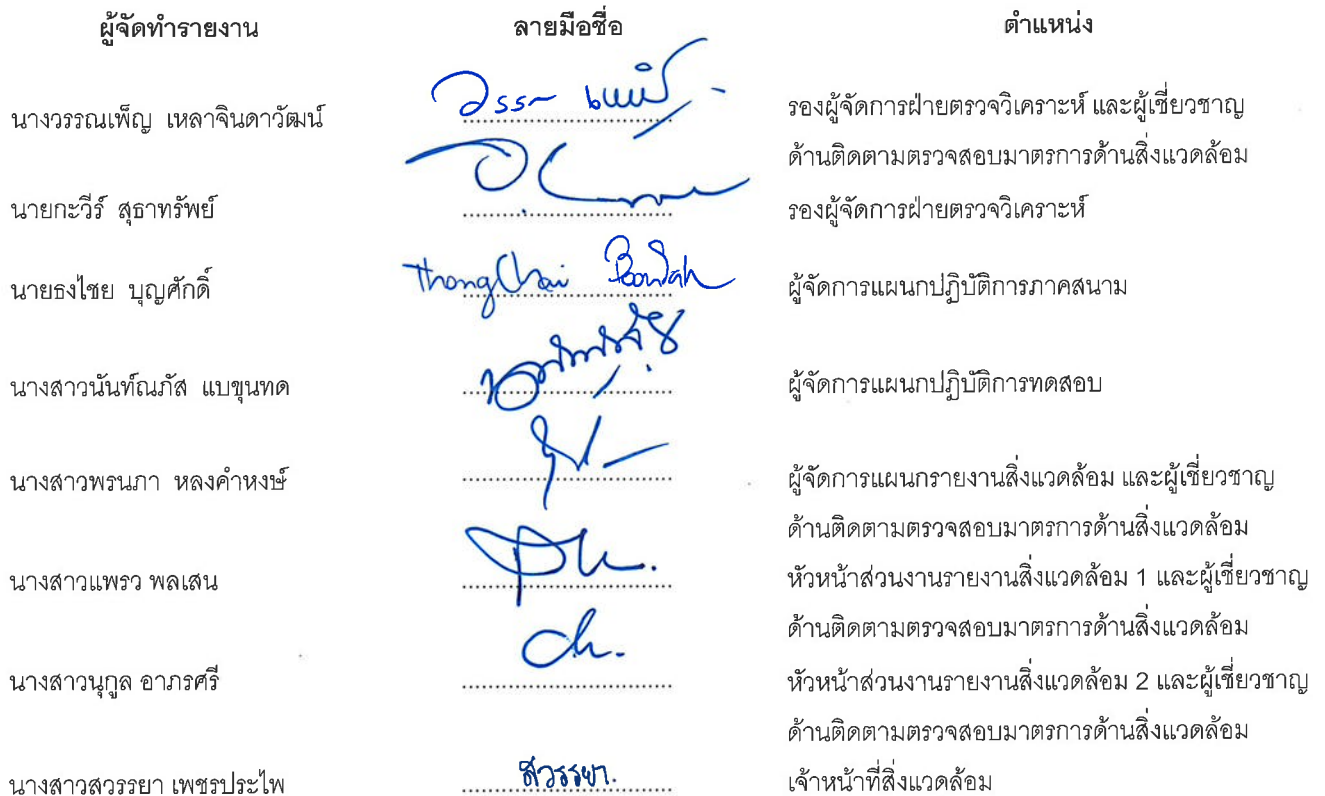 ผู้จัดทำรายงาน ลายมือชื่อ ตำแหน่ง
นางวรรณเพ็ญ เหลาจินดาวัฒน์ วรรณเพ็ญ รองผู้จัดการฝ่ายตรวจวิเคราะห์ และผู้เชี่ยวชาญ
ด้านติดตามตรวจสอบมาตรการด้านสิ่งแวดล้อม
นายกะวีร์ สุธาทรัพย์ รองผู้จัดการฝ่ายตรวจวิเคราะห์
นายธงไชย บุญศักดิ์ ThongChai ผู้จัดการแผนกปฏิบัติการภาคสนาม
นางสาวนันท์ณภัส แบขุนทด ผู้จัดการแผนกปฏิบัติการทดสอบ
นางสาวพรนภา หลงคำหงษ์ ผู้จัดการแผนกรายงานสิ่งแวดล้อม และผู้เชี่ยวชาญ
ด้านติดตามตรวจสอบมาตรการด้านสิ่งแวดล้อม
นางสาวแพรว พลเสน หัวหน้าส่วนงานรายงานสิ่งแวดล้อม 1 และผู้เชี่ยวชาญ
ด้านติดตามตรวจสอบมาตรการด้านสิ่งแวดล้อม
นางสาวนุกูล อาภรศรี หัวหน้าส่วนงานรายงานสิ่งแวดล้อม 2 และผู้เชี่ยวชาญ
ด้านติดตามตรวจสอบมาตรการด้านสิ่งแวดล้อม
นางสาวสวรรยา เพชรประไพ สวรรยา. เจ้าหน้าที่สิ่งแวดล้อม